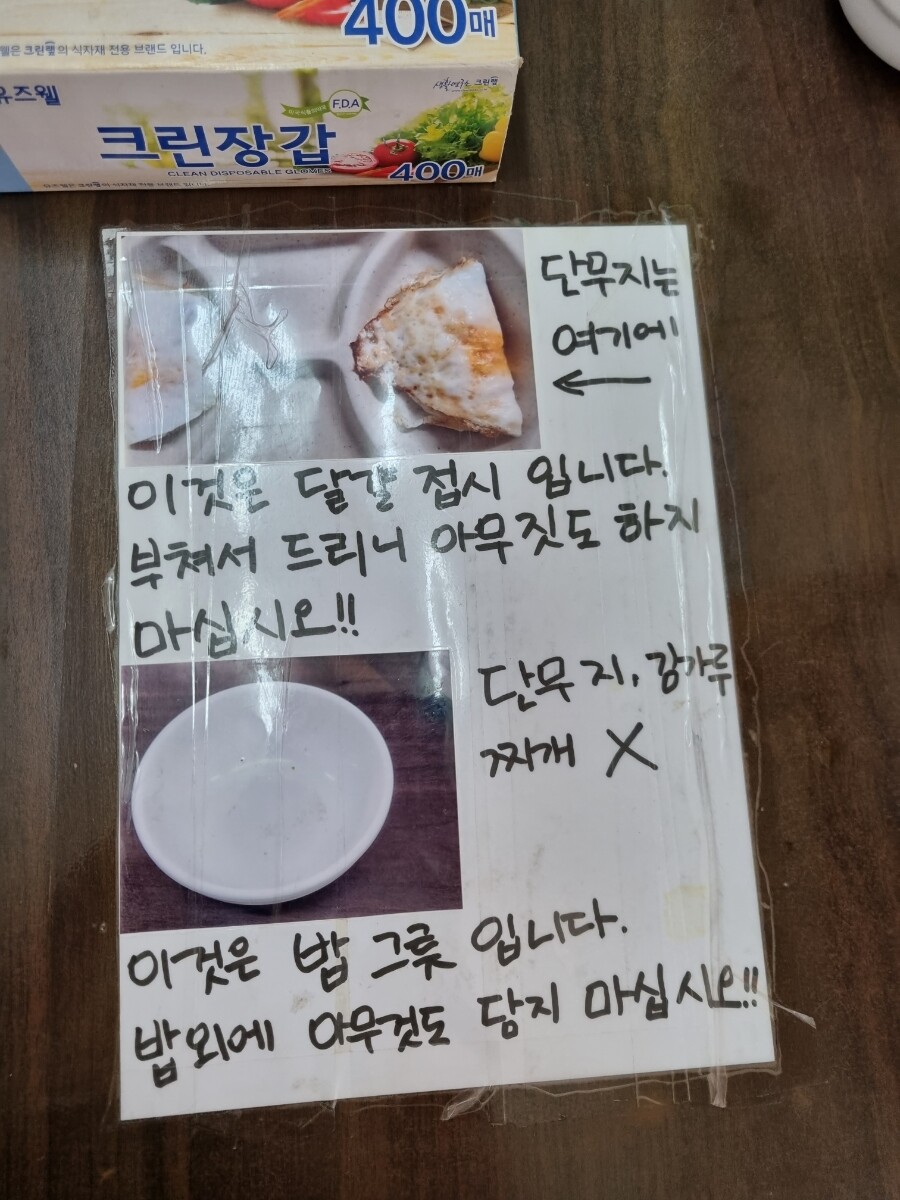 400매
은 크린랲의 식자재 전용 브랜드 입니다.
유즈웰
F.D.A
크린장갑
CLEAN DISPOSABLE GLOVES
400매
단무지는
여기에
←
이것은 달걀 접시 입니다.
부쳐서 드리니 아무짓도 하지
마십시오!!
단무지, 강가루
찌개 X
이것은 밥 그릇 입니다.
밥외에 아무것도 담지 마십시오!!